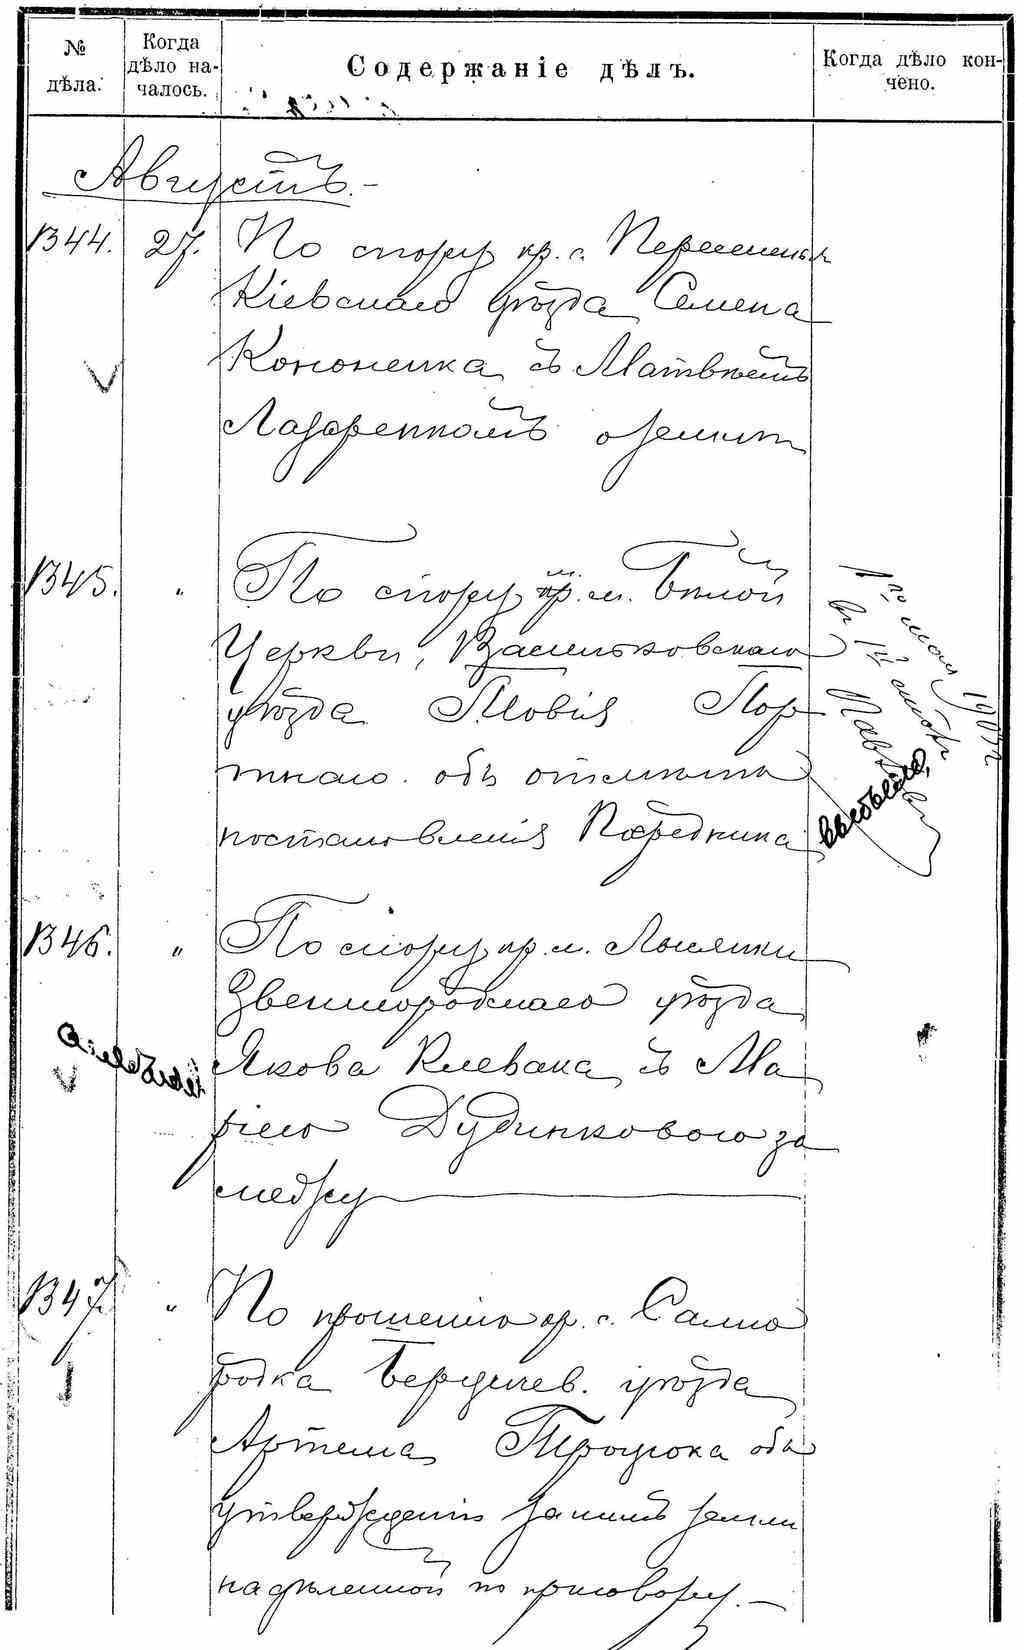 № дѣла.
Когда дѣло на-
чалось.
Содержаніе дѣлъ.
Когда дѣло кон-
чено.
Августъ.
1344. 27. По спору кр. с.
Кіевскаго уѣзда Семена
Кононенка съ Матвѣемъ
Лазаренкомъ о землѣ
1345. " По спору кр. м. Бѣлой
Церкви, Васильковскаго
уѣзда Товія Пор
тнаго. объ отмѣнѣ
постановленія Посредника
1346. " По спору кр. м. Лысянки
Звенигородскаго уѣзда
Якова Клевака съ Ма
ріею Дудинковою за
межу
1347. " По прошенію кр. с. Самго
родка Бердичев. уѣзда
Артема Троцюка объ
утвержденіи за нимъ земли
надѣленной по приговору. —
1 го мая 1903 г
въ 1й